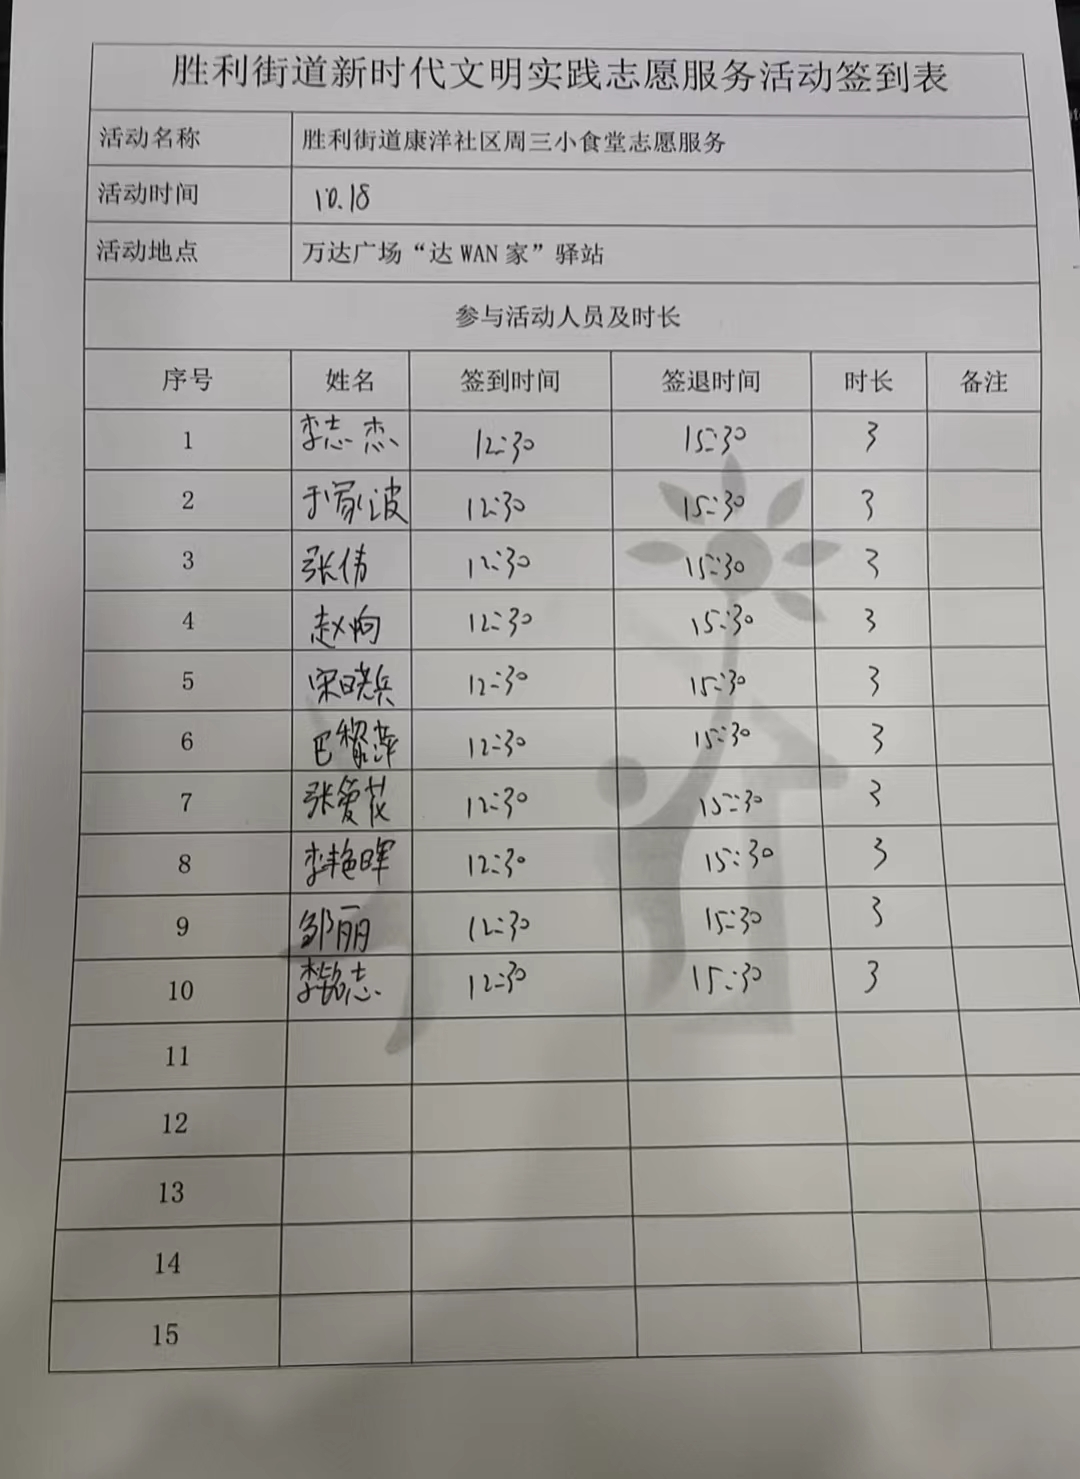 胜利街道新时代文明实践志愿服务活动签到表
活动名称 胜利街道康洋社区周三小食堂志愿服务
活动时间 10.18
活动地点 万达广场“达 WAN 家”驿站
参与活动人员及时长
序号 姓名 签到时间 签退时间 时长 备注
1 李志杰 12:30 15:30 3
2 于家波 12:30 15:30 3
3 张伟 12:30 15:30 3
4 赵响 12:30 15:30 3
5 宋晓兵 12:30 15:30 3
6 巴黎萍 12:30 15:30 3
7 张爱花 12:30 15:30 3
8 李艳晖 12:30 15:30 3
9 邹丽 12:30 15:30 3
10 12:30 15:30 3
11
12
13
14
15